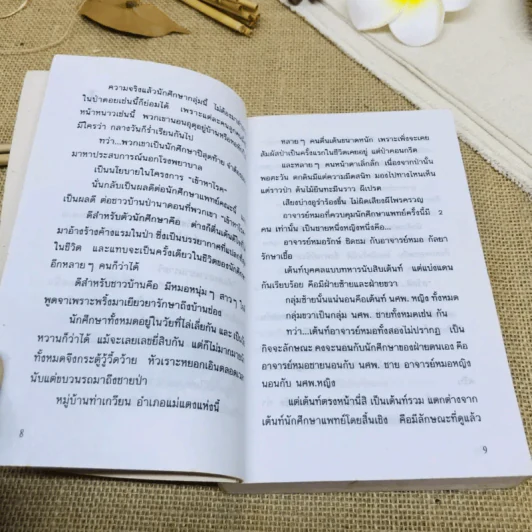 ความจริงแล้วนักศึกษากลุ่มนี้ ไม่ต้องมา
ในป่าดอยเช่นนี้ก็ย่อมได้ เพราะแต่ละคน
หน้าหนาวเช่นนี้ พวกเขานอนอุตุอยู่บ้าน
มีใครว่า กลางวันก็ร่ำเรียนกันไป
ทว่า...พวกเขาเป็นนักศึกษาปีสุดท้าย
มาหาประสบการณ์นอกโรงพยาบาล
เป็นนโยบายในโครงการ "เข้าหาโรค"
นั่นกลับเป็นผลดีต่อนักศึกษาแพทย์คณะนี้
เป็นผลดี ต่อชาวบ้านป่านาดอนที่พวกเขา
ดีสำหรับตัวนักศึกษาคือ ต่างก็ตื่นเต้นดีใจ
มาอ้างร้างค้างแรมในป่า ซึ่งเป็นบรรยากาศที่แปลก
ในชีวิต และแทบจะเป็นครั้งเดียวในชีวิตของนัก
อีกหลายๆ คนก็ว่าได้
ดีสำหรับชาวบ้านคือ มีหมอหนุ่มๆ สาวๆ
พูดจาเพราะพริ้งมาเยียวยารักษาถึงบ้านช่อง
นักศึกษาทั้งหมดอยู่ในวัยที่ไล่เลี่ยกัน และ
หวานก็ว่าได้ แม้จะเลยเลขยี่สิบกัน แต่ก็ไม่มาก
ทั้งหมดจึงกระตู้วู้วี้ดว้าย หัวเราะหยอกเอินตลอด
นับแต่ขบวนรถมาถึงชายป่า
หมู่บ้านท่าเกวียน อำเภอแม่แตงแห่งนี้
8
หลายๆ คนตื่นเต้นขนาดหนัก เพราะเพิ่งจะเคย
สัมผัสป่าเป็นครั้งแรกในชีวิตเคยอยู่ แต่ป่าคอนกรีต
และหลายๆ คนหน้าตาเลิ่กลั่ก เนื่องจากป่านั้น
พอตะวัน ตกดินมีแต่ความมืดสนิท มองไปทางไหนเห็น
แต่ราวป่า ต้นไม้ยืนทะมึนราว ผีเปรต
เสียงบ่างอูร่ำร้องขึ้น ไม่ผิดเสียงผีไพรครวญ
อาจารย์หมอที่ควบคุมนักศึกษาแพทย์ครั้งนี้มี 2
คน เท่านั้น เป็นชายหนึ่งหญิงหนึ่งคือ...
อาจารย์หมอรักษ์ ชิดชม กับอาจารย์หมอ กัลยา
รักษาเยื่อ
เต้นท์บุคคลแบบทหารนับสิบเต้นท์ แต่แบ่งแดน
กันเรียบร้อย คือมีฝ่ายซ้ายและฝ่ายขวา
กลุ่มซ้ายนั้นแน่นอนคือเต้นท์ นศพ. หญิง ทั้งหมด
กลุ่มขวาเป็นกลุ่ม นศพ. ชายทั้งหมดเช่น กัน
ทว่า...เต้นท์อาจารย์หมอทั้งสองไม่ปรากฏ เป็น
กิจจะลักษณะ คงจะนอนกับนักศึกษาของฝ่ายตนเอง คือ
อาจารย์หมอชายนอนกับ นศพ. ชาย อาจารย์หมอหญิง
นอนกับ นศพ.หญิง
แต่เต้นท์ตรงหน้านี่สิ เป็นเต้นท์รวม แตกต่างจาก
เต้นท์นักศึกษาแพทย์โดยสิ้นเชิง คือมีลักษณะที่ดูแล้ว
9